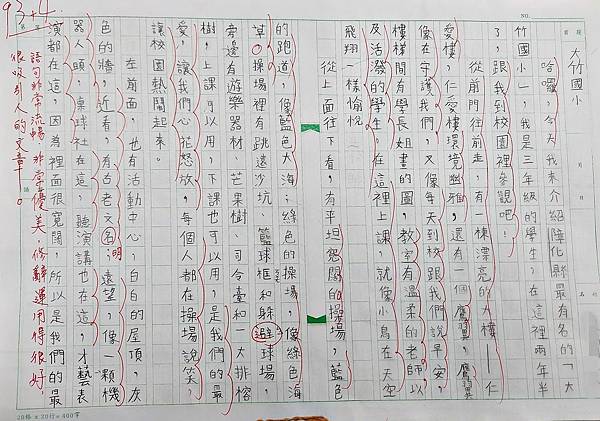 大竹國小
哈囉，今天我來介紹彰化縣最有名的「大
竹國小」，我是三年級的學生，在這裡兩年半
了，跟我到校園裡參觀吧！
從前門往前走，有一棟漂亮的大樓——仁
愛樓，仁愛樓環境幽雅，還有一個鷹翼，鷹翼
像在守護我們，又像每天到校跟我們說早安，
樓梯間有學長姐畫的圖，教室有溫柔的老師以
及活潑的學生，在這裡上課，就像小鳥在天空
飛翔一樣愉悅。
從上面往下看，有平坦寬闊的操場，藍色
的跑道，像藍色大海；綠色的操場，像綠色海
草。操場裡有跳遠沙坑、籃球框和躲避球場，
旁邊有遊樂器材、芒果樹、司令臺和一大排榕
樹，上課可以用，下課也可以用，是我們的最
愛，讓我們心花怒放，每個人都在操場說笑，
讓校園熱鬧起來。
在前面，也有活動中心，白白的屋頂，灰
色的牆，近看，有古老文明，遠望，像一顆機
器人頭，桌球社在這，聽演講也在這，才藝表
演都在這，因為裡面很寬闊，所以是我們的最
語句非常流暢，非常優美，修辭運用得很好，
很吸引人的文章。
93+4
20格×20行=400字
NO.